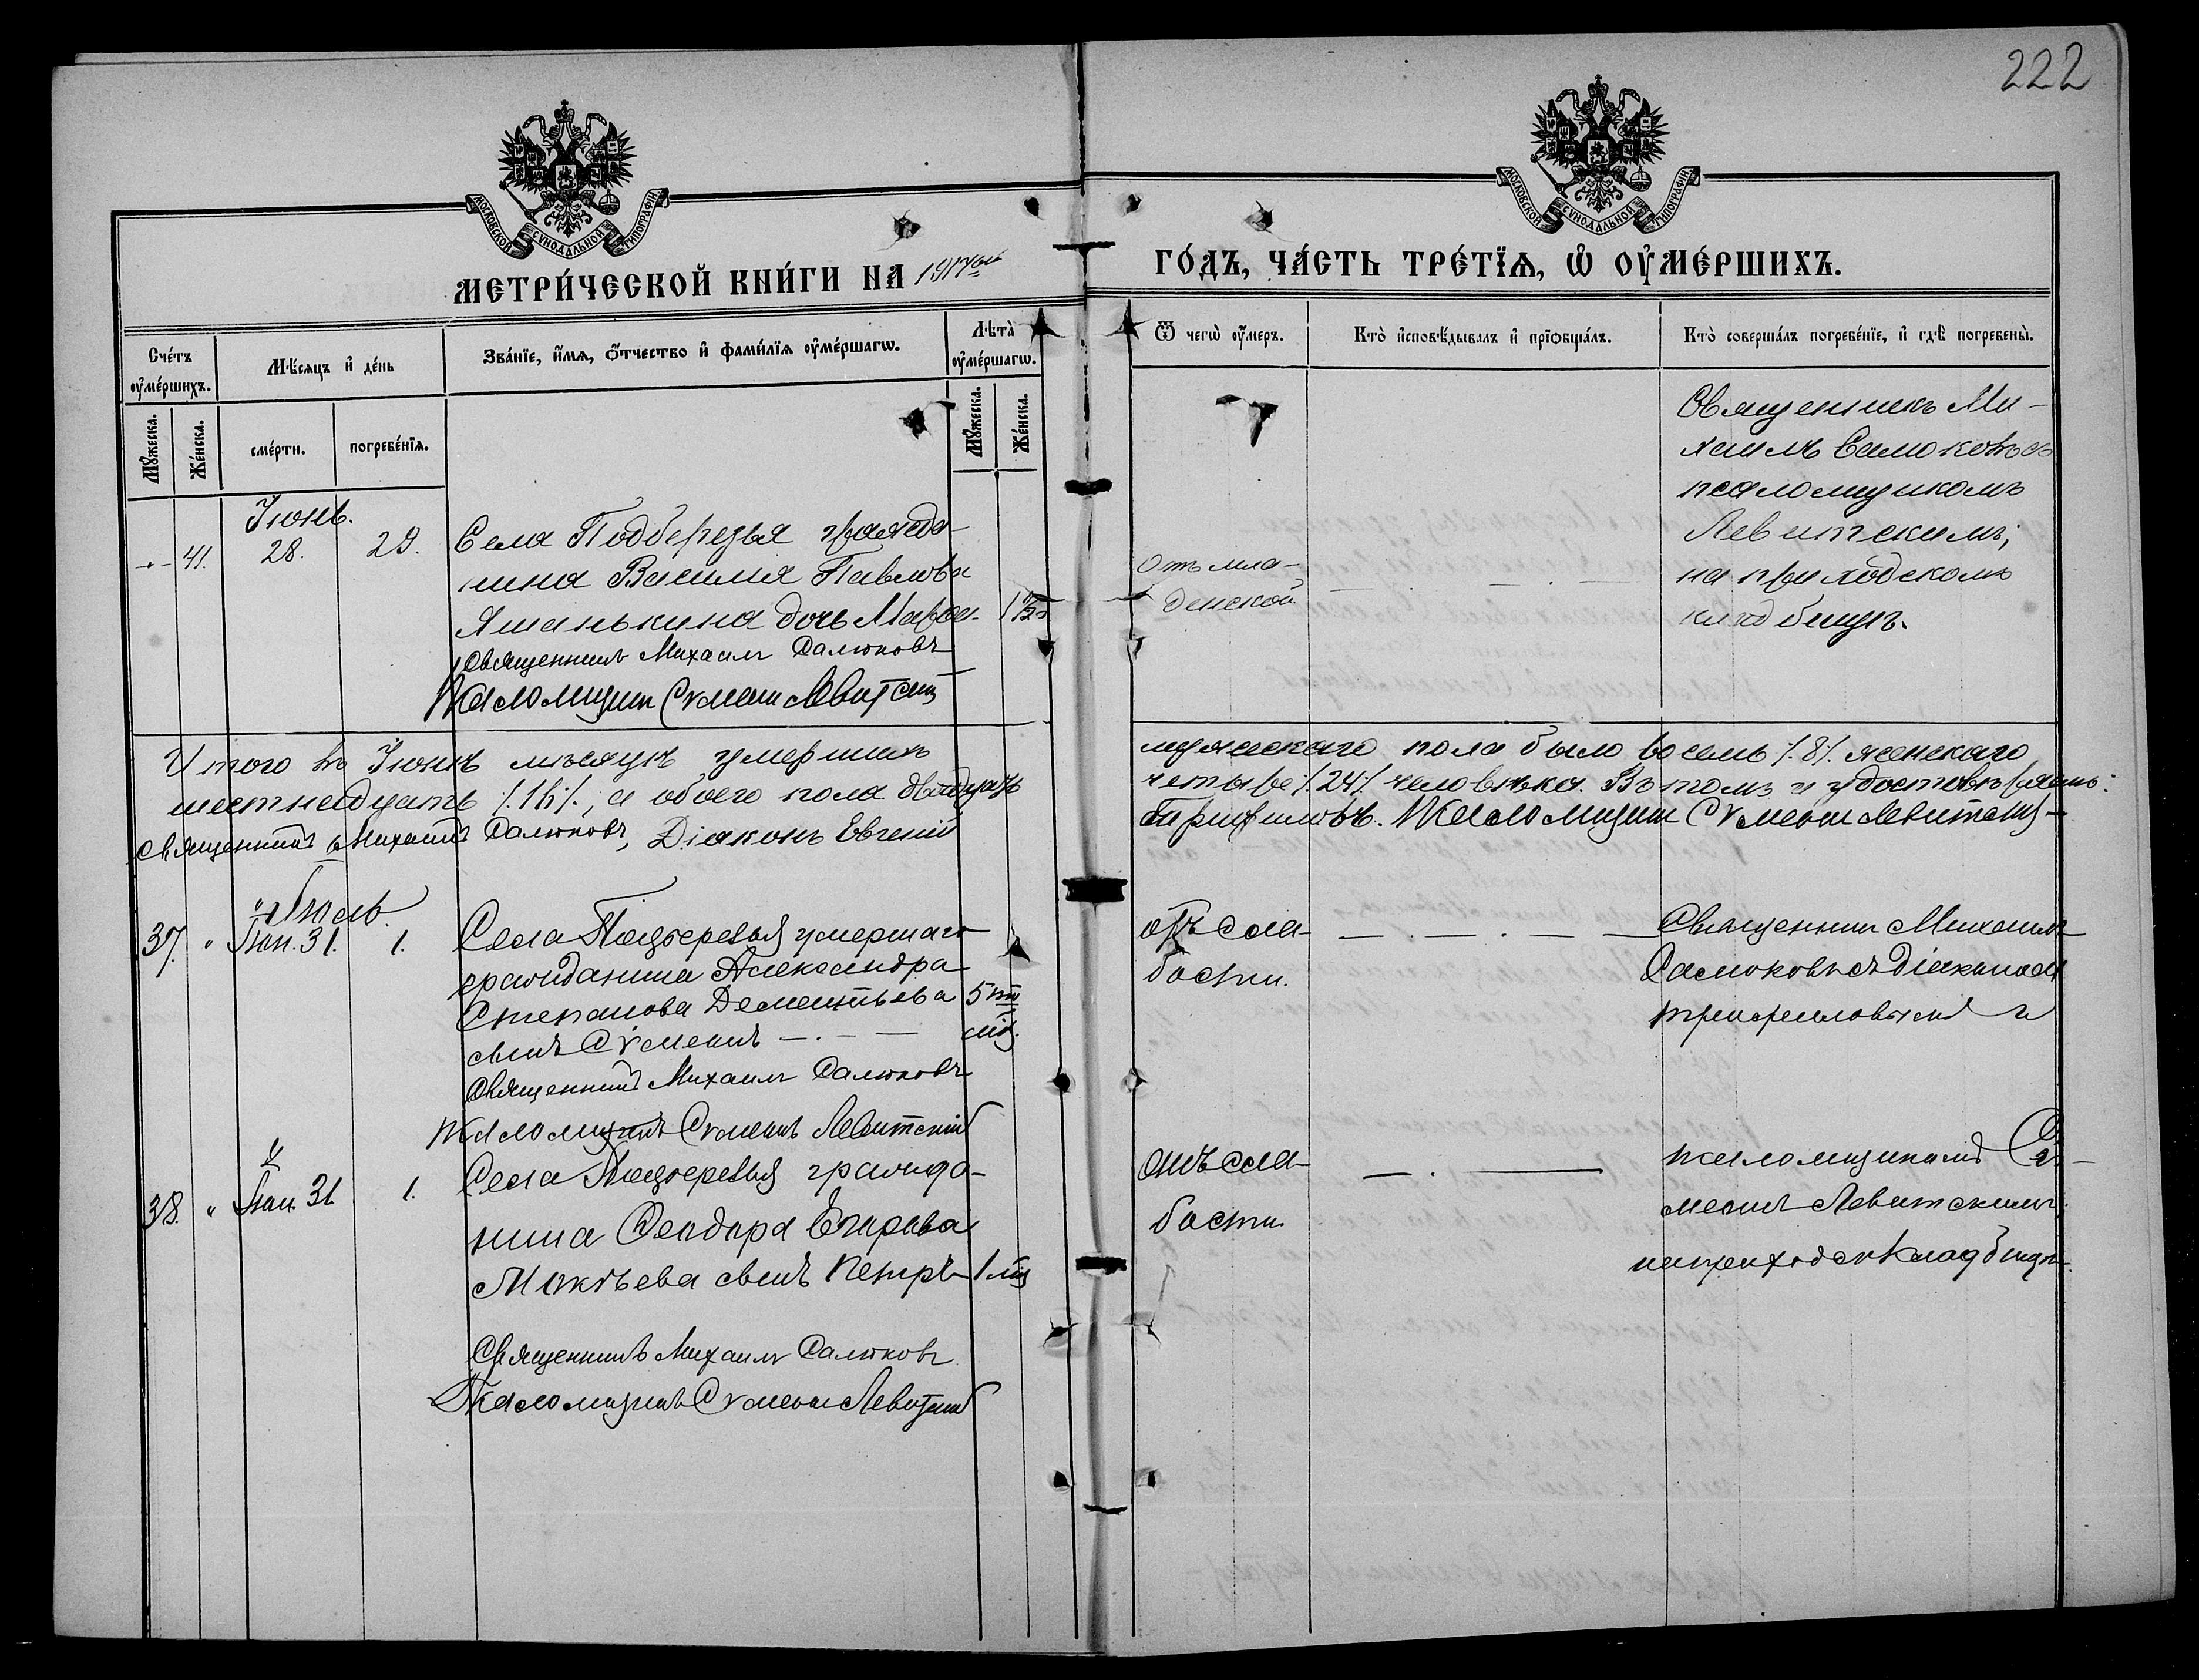 222
МОСКОВСКОЙ СѴНОДАЛЬНОЙ ТИПОГРАФІИ
МОСКОВСКОЙ СѴНОДАЛЬНОЙ ТИПОГРАФІИ
МЕТРИ́ЧЕСКОЙ КНИ́ГИ НА 1917ый
ГО́ДЪ, ЧА́СТЬ ТРЕ́ТЇѦ, Ѡ҆ ОУ҆МЕ́РШИХЪ.
Сче́тъ оу҆ме́ршихъ.
Мꙋ́жеска.
Же́нска.
Мѣ́сяцъ и҆ де́нь
сме́рти.
погребе́нїѧ.
Зва́нїе, и҆́мѧ, ѻ҆́тчество и҆ фами́лїѧ оу҆ме́ршагѡ.
Лѣта̀ оу҆ме́ршагѡ.
Мꙋ́жеска.
Же́нска.
Ѿ чегѡ̀ оу҆́меръ.
Кто̀ и҆сповѣ́дывалъ и҆ прїѡбща́лъ.
Кто̀ соверша́лъ погребе́нїе, и҆ гдѣ̀ погребены̀.
Іюнь.
41. 28. 29.
Села Подберезья гражда-
нина Василія Павлова
Яшанькина дочь
Священникъ Михаилъ Самоковъ
Псаломщикъ Сѵмеонъ Левитскій
Отъ мла-
денской
Священникъ Ми-
хаилъ Самоковъ съ
псаломщикомъ
Левитскимъ,
на приходскомъ
кладбищѣ.
Итого въ Іюнѣ мѣсяцѣ умершихъ
мужескаго пола было восемь /.8/. женскаго
шестнадцать /.16/., а обоего пола двадцать
четыре /.24/. человѣка. Въ томъ и удостовѣряемъ:
Священникъ Михаилъ Самоковъ, Діаконъ Евгеній
Трифиловъ. Псаломщикъ Сѵмеонъ Левитскій
Іюль.
37. " Іюн. 31. 1.
Села Подберезья умершаго
гражданина Александра
Степанова Дементьева
сынъ Сѵмеонъ
5ти
мѣс.
Священникъ Михаилъ Самоковъ
Псаломщикъ Сѵмеонъ Левитскій
отъ сла-
бости.
Священникъ Михаилъ
Самоковъ съ діакономъ
Трифиловымъ и
38. " Іюн. 31 1.
Села Подберезья гражда-
нина Ѳеодора Егорова
Мокѣева сынъ Петръ
1 мѣс
Священникъ Михаилъ Самоковъ
Псаломщикъ Сѵмеонъ Левитскій
отъ сла-
бости
псаломщикомъ Сѵ-
меономъ Левитскимъ,
на приходск кладбищѣ.